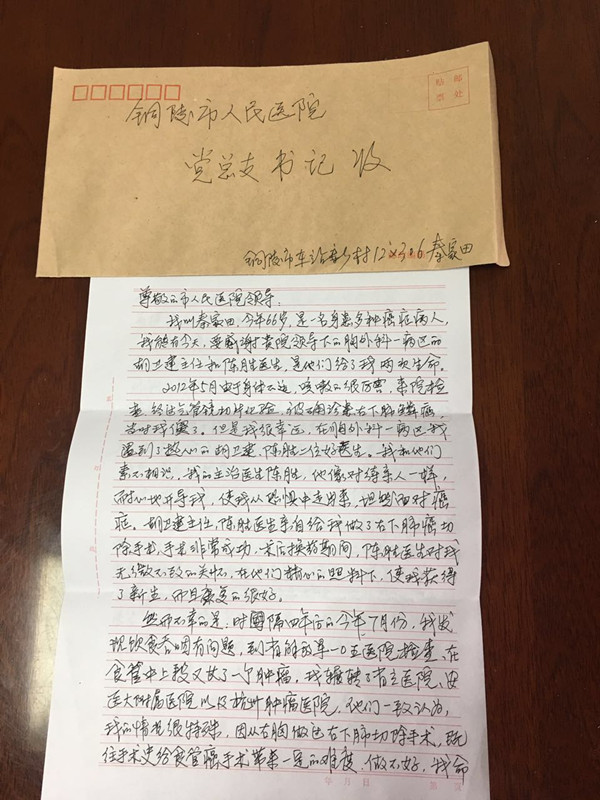 贴 邮
票 处
铜陵市人民医院
党总支书记 收
铜陵市车站新乡村12 306 秦家田
尊敬的市人民医院领导:
我叫秦家田,今年66岁,是一名身患多种癌症病人,
我能有今天,要感谢贵院领导下的胸外科一病区的
胡卫建主任和陈胜医生,是他们给了我两次生命。
2012年5月由于身体不适,咳嗽的很厉害,来院检
查,经过气管镜切片化验,被确诊患右下肺鳞癌,
当时我傻了。但是我很幸运,在胸外科一病区我
遇到了热心的胡卫建、陈胜二位好医生。我和他们
素不相识,我的主治医生陈胜,他像对待亲人一样,
耐心地开导我,使我从恐惧中走出来,坦然面对癌
症。胡卫建主任、陈胜医生亲自给我做了右下肺癌切
除手术,手术非常成功,术后换药期间,陈胜医生对我
无微不致的关怀,在他们精心的照料下,使我获得
了新生,而且康复的很好。
然而不幸的是:时隔四年后的今年7月份,我发
现饮食吞咽有问题,到省解放军一0五医院检查,在
食管中上段又长了一个肿瘤,我辗转了省立医院、安
医大附属医院以及杭州肿瘤医院,他们一致认为,
我的情况很特殊,因从右胸做过右下肺切除手术,既
往手术史给食管癌手术带来一定的难度,做不好,我命
年 月 日 第 页